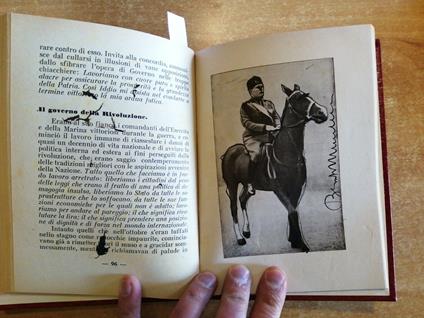 rare contro di esso. Invita alla concordia,
sce dal cullarsi in illusioni di vane opposizioni,
dallo sfibrare l'opera di Governo nelle troppe
chiacchiere: Lavoriamo con cuore puro e
alacre per assicurare la prosperità e la grandezza
della Patria. Così Iddio mi assista nel condurre a
termine vittorioso la mia ardua fatica.
Il governo della Rivoluzione.
Erano al suo fianco i comandanti dell'Esercito
e della Marina vittoriosi durante la guerra, e
minciò il lavoro immane di riassestare i danni di
quasi un decennio di vita nazionale e di avviare la
politica interna ed estera ai fini perseguiti dalla
rivoluzione, che erano saggio contemperamento
delle tradizioni migliori con le aspirazioni avvenire
della Nazione. Tutto quello che facciamo è in fon-
do lavoro arretrato: liberiamo i cittadini dal peso
delle leggi che erano il frutto di una politica di de-
magogia insulsa, liberiamo lo Stato da tutte le so-
prastrutture che lo soffocavano, da tutte le sue fun-
zioni economiche per le quali non è adatto; lavo-
riamo per andare al pareggio; il che significa rivalu-
tare la lira; il che significa prendere una posizio-
ne di dignità e di forza nel mondo internazionale.
Intanto quelli che nell'ottobre s'eran tuffati
nello stagno come ranocchie impaurite, comincia-
vano già a rimettere fuori il muso e a gracidar som-
messamente, mentre richiamavan di palude in
96
Mussolini